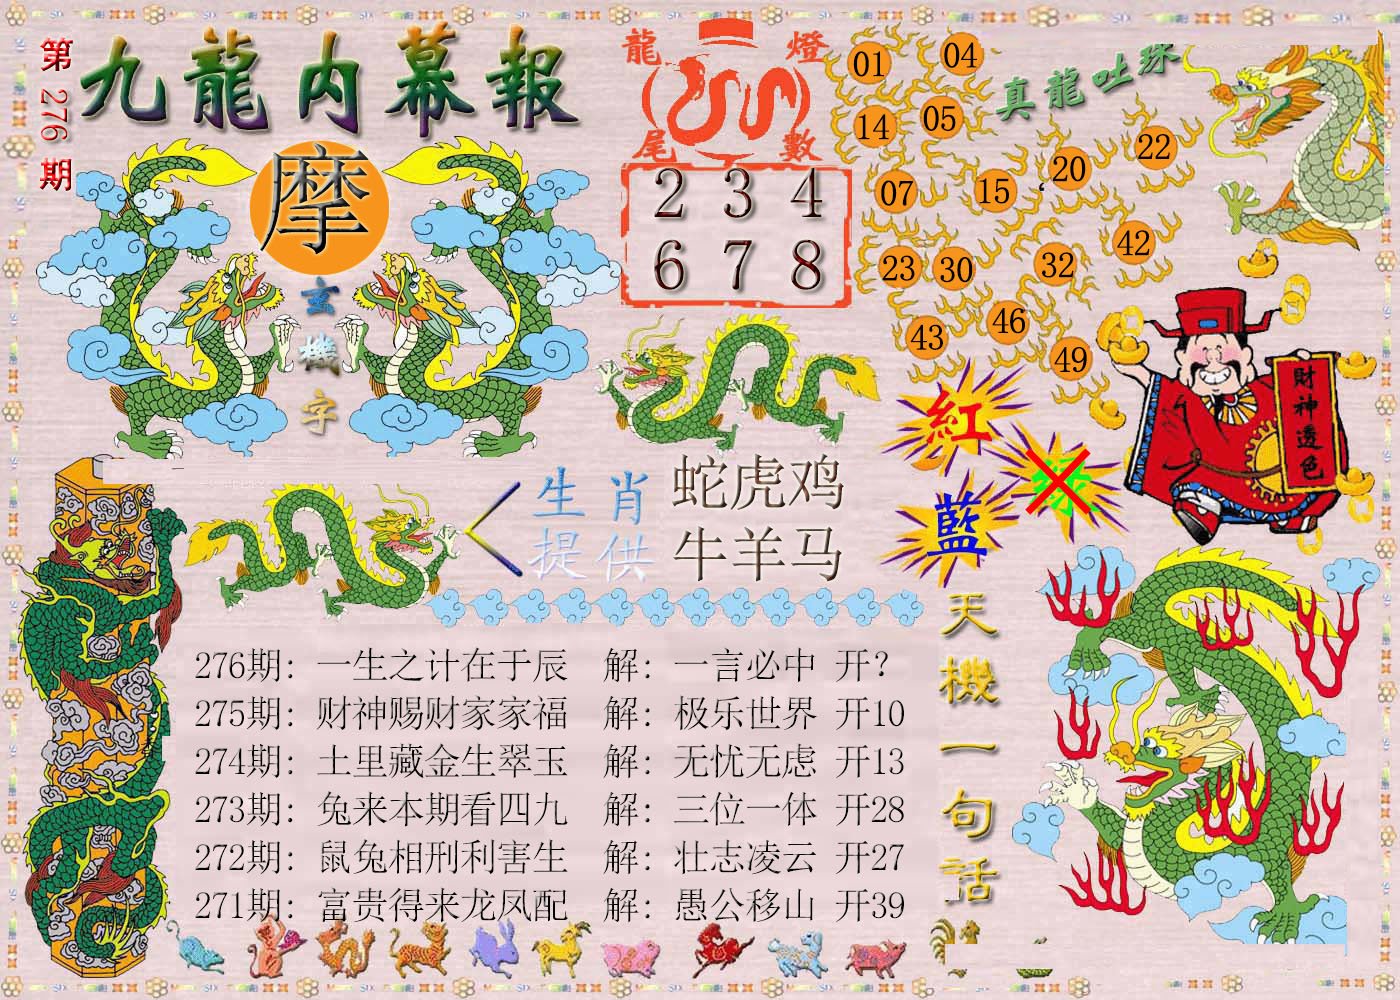 第276期
九龍内幕報
摩
玄機字
龍燈尾數
2 3 4
6 7 8
真龍吐珠
01 04
14 05
07 15 20 22
23 30 32 42
43 46 49
財神透色
紅
綠
藍
生肖提供
蛇虎鸡
牛羊马
天機一句話
276期：一生之计在于辰 解：一言必中 开？
275期：财神赐财家家福 解：极乐世界 开10
274期：土里藏金生翠玉 解：无忧无虑 开13
273期：兔来本期看四九 解：三位一体 开28
272期：鼠兔相刑利害生 解：壮志凌云 开27
271期：富贵得来龙凤配 解：愚公移山 开39